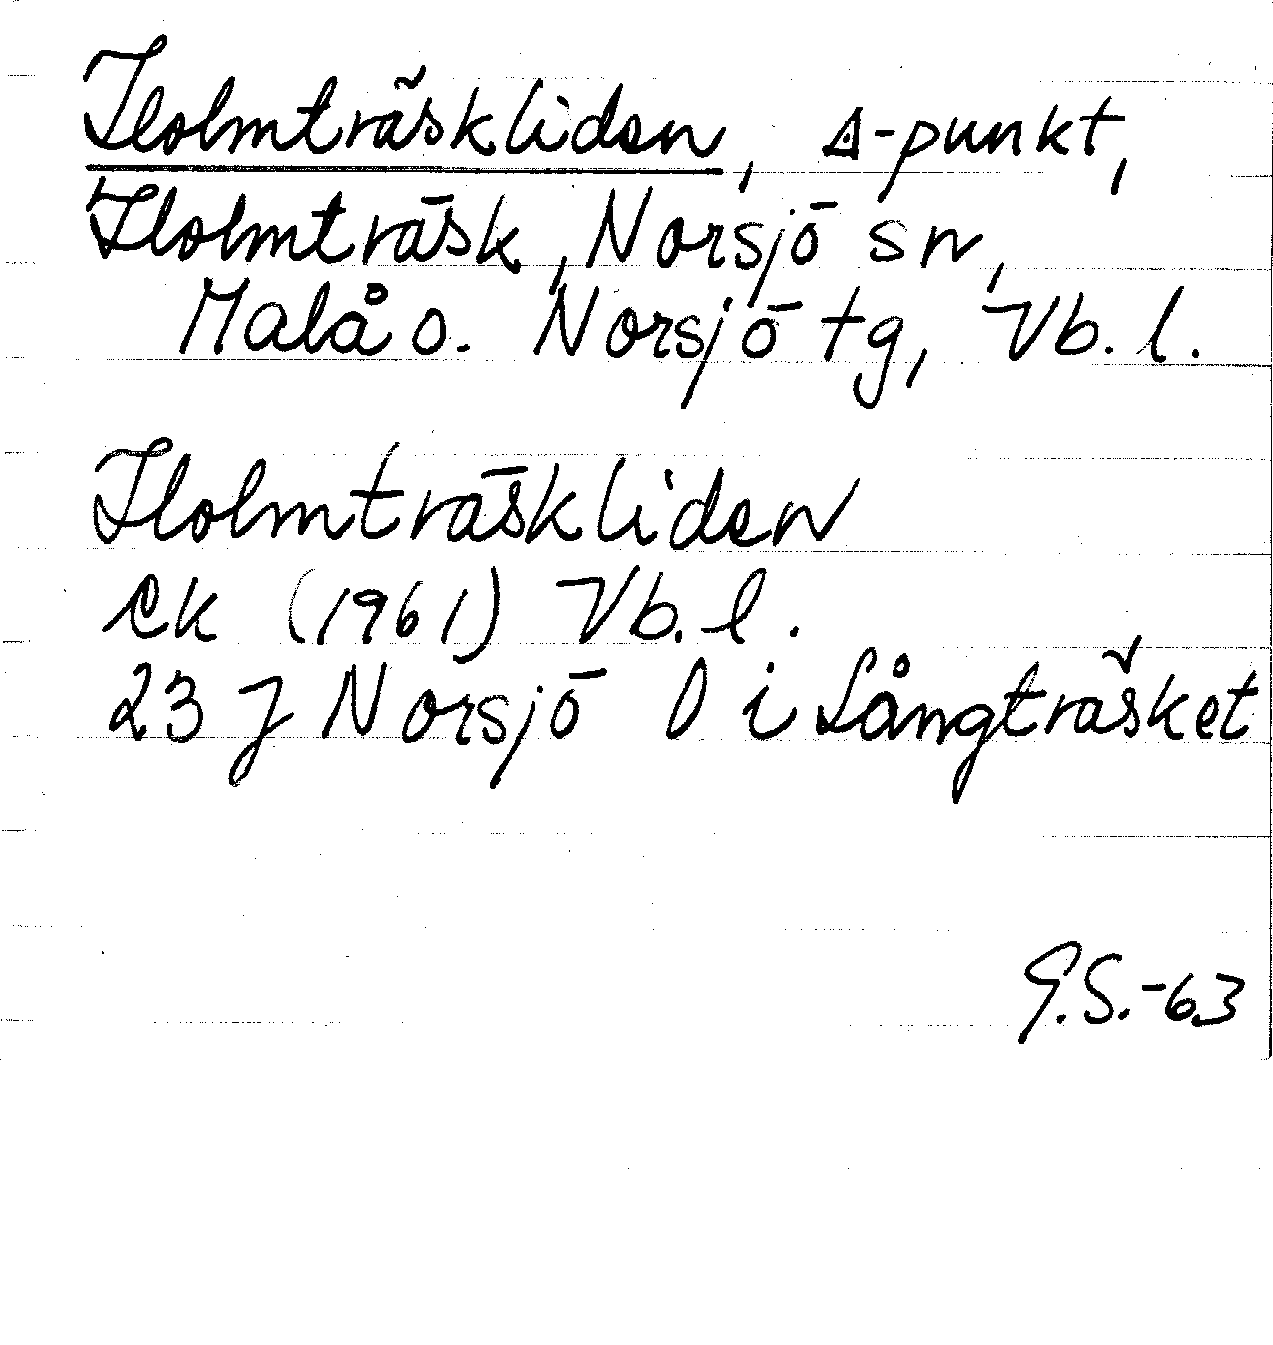 Holmträskliden, Δ-punkt,
Holmträsk, Norsjö sn,
Malå o. Norsjö tg, Vb. l.
Holmträskliden
ek (1961) Vb. l.
23 J Norsjö O i Långträsket
G.S.-63